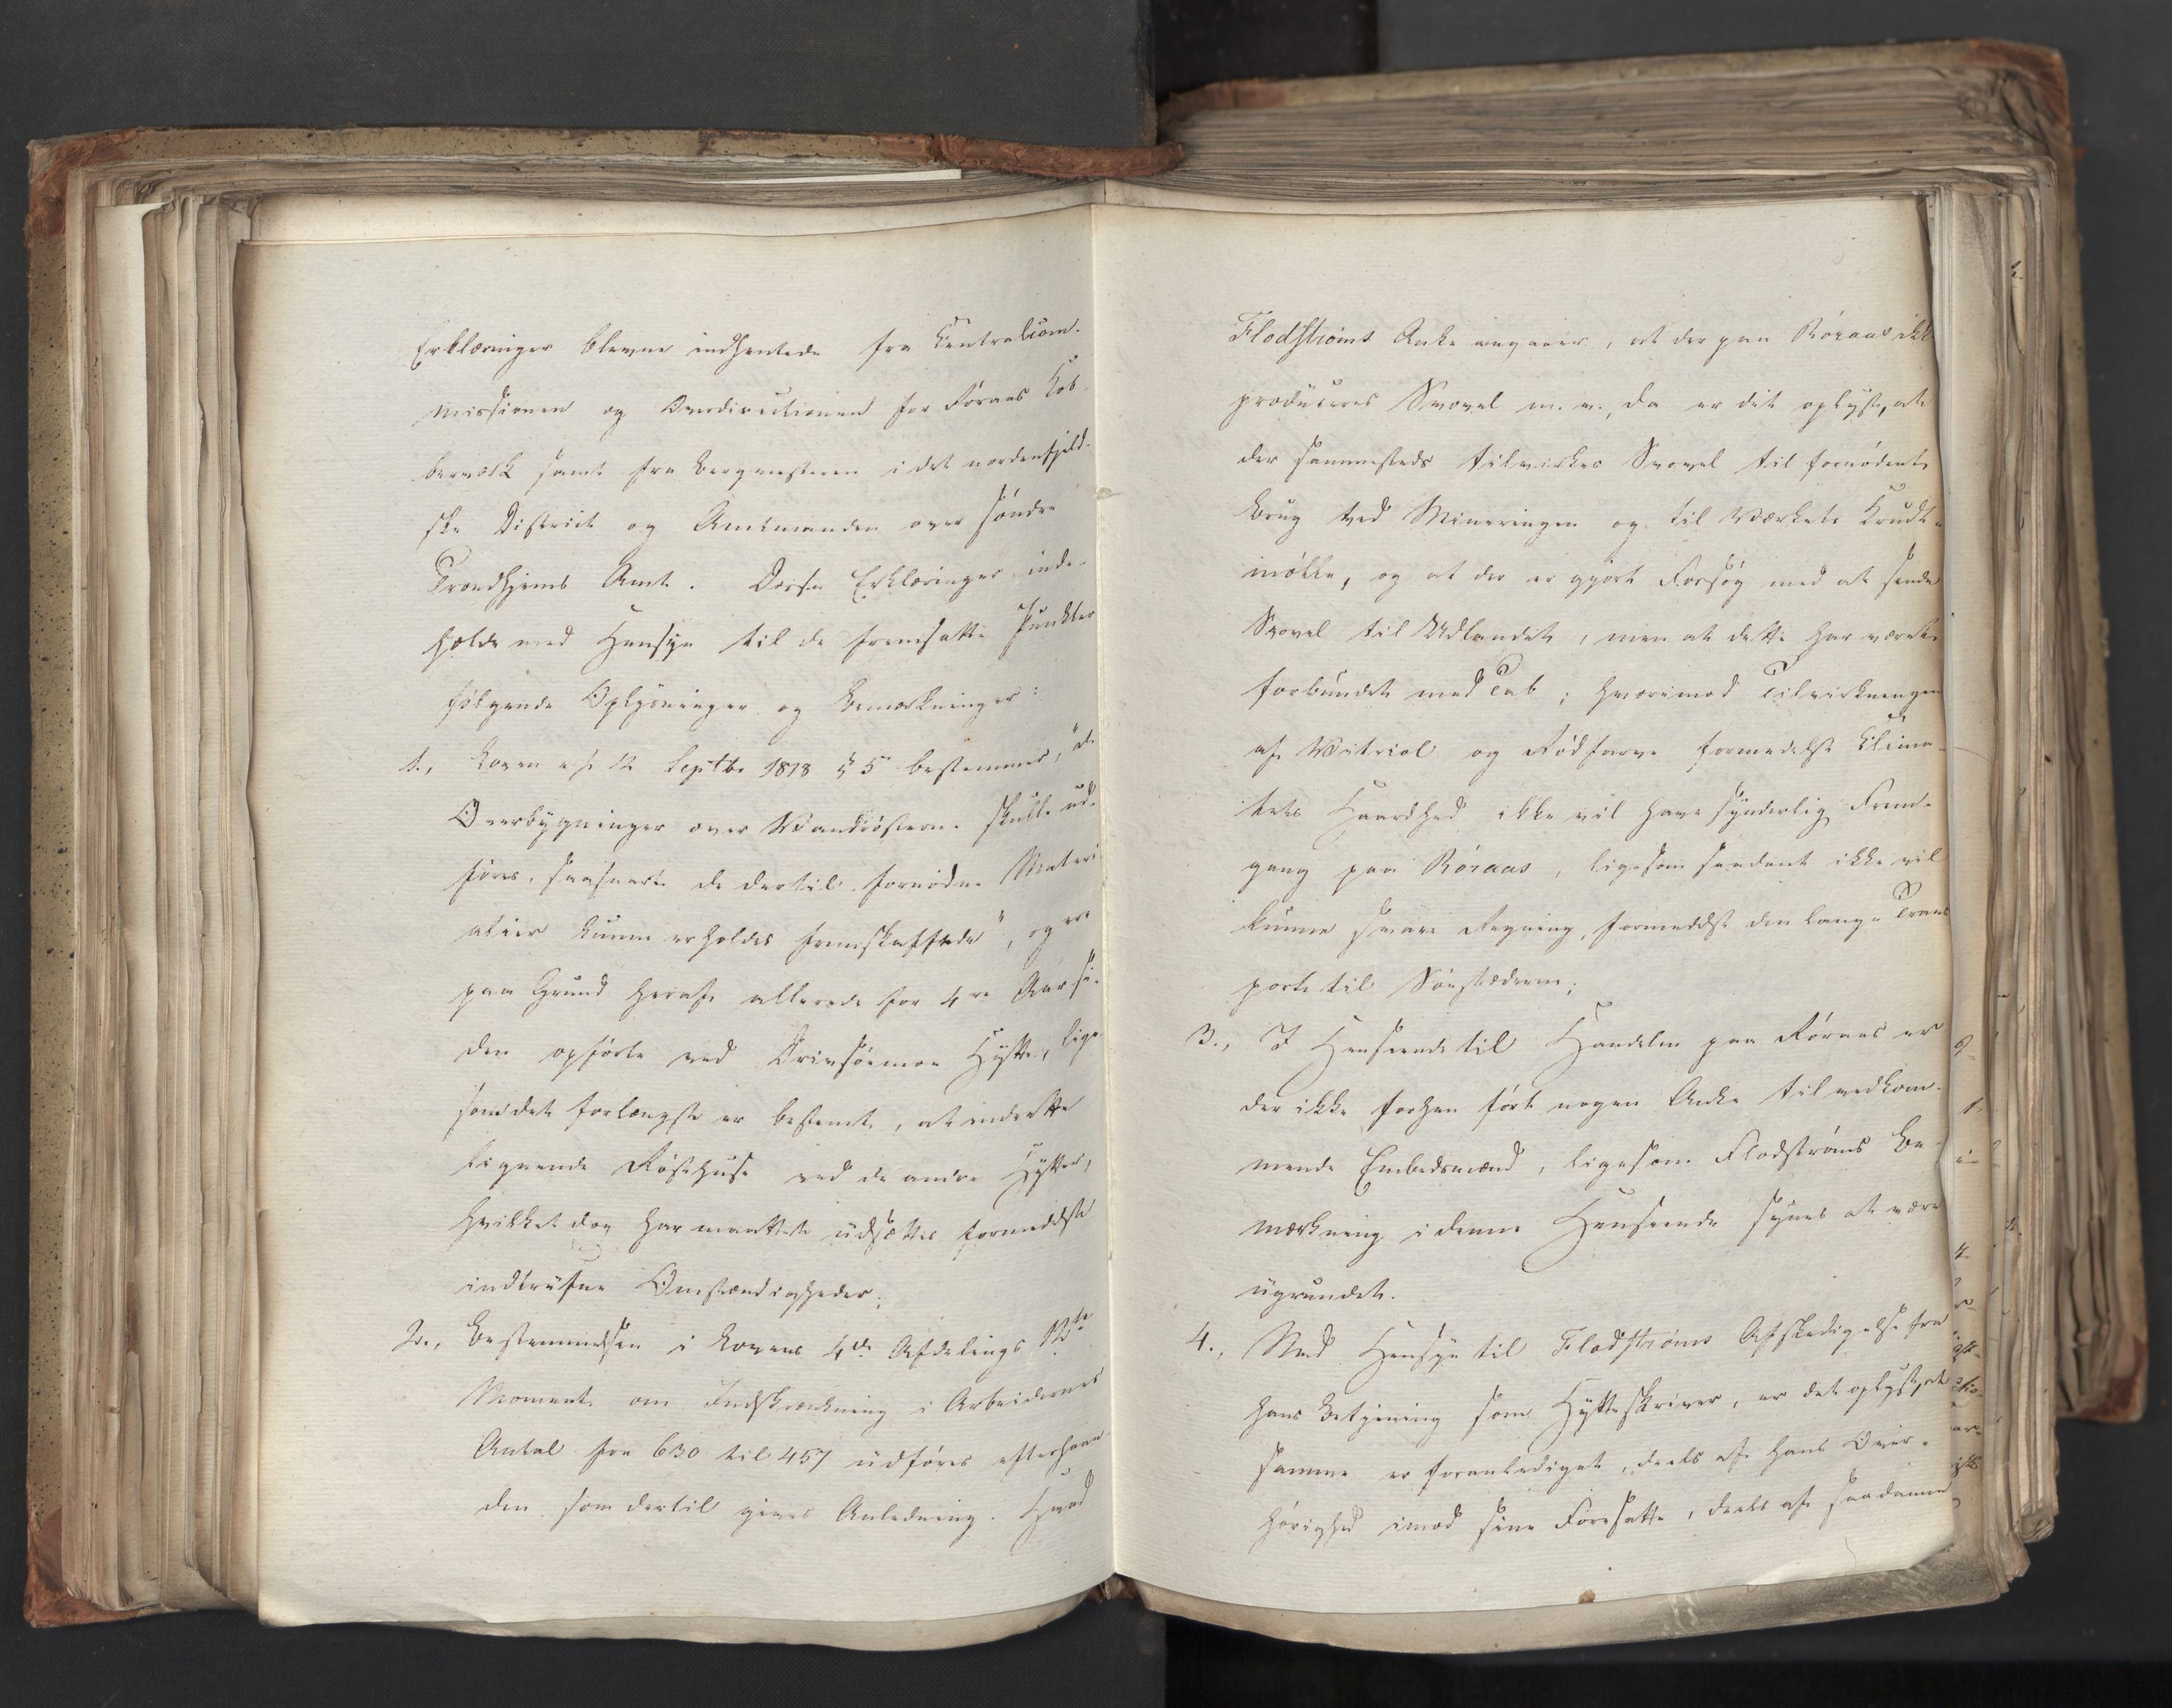 Erklæringer blevne indhentede fra Centralcom-
missionen og Overdirectionen for Røraas Kob-
berværk samt fra Bergmesteren i det nordenfjeld-
ske District og Amtmanden over søndre
Trondhjems Amt. Disse Erklæringer inde-
holde med Hensyn til de fremsatte Punkter
følgende Oplysninger og Bemærkninger:
1., Loven af 12 Septbr 1818 § 5 bestemmer, "at
Overbygninger over Vandrøsterne skulle ud-
føres, saasnart de dertil fornødne Materi
alier kunne erholdes fremskaffede", og ere
paa Grund heraf allerede for 4re Aar si-
den opførte ved Dragaasmoe Hytte, lige
som det forlængst er bestemt, at indrette
lignende Røstehuse ved de andre Hytter,
hvilket dog har maattet udsættes formedelst
indtrufne Omstændigheder;
2., Bestemmelsen i Lovens 4de Afdelings 12te
Moment om Indskrænkning i Arbeidernes
Antal fra 630 til 457 udføres efterhaan-
den som dertil gives Anledning. Hvad
Flodstrøms Anke angaaer, at der paa Røraas ikke
produceres Svovel m. v., da er det oplyst, at
der sammesteds tilvirkes Svovel til fornødent
Brug ved Mineringen og til Værkets Krudt-
mølle, og at der er gjort Forsøg med at sende
Svovel til Udlandet, men at dette har været
forbundet med Tab; hvorimod Tilvirkningen
af Vitriol og Rødfarve formedelst Clima-
tets Haardhed ikke vil have synderlig Frem-
gang paa Røraas, ligesom saadant ikke vil
kunne svare Regning, formedelst den lange Trans
port til Søestæderne;
3., I Henseende til Handelen paa Røraas er
der ikke forhen ført nogen Anke til vedkom-
mende Embedsmænd, ligesom Flodstrøms Be-
mærkning i denne Henseende synes at være
ugrundet.
4., Med Hensyn til Flodstrøms Afskedigelse fra
hans Betjening som Hytteskriver, er det oplyst, at
samme er foranlediget, deels af hans Over-
hørighed imod sine Foresatte, deels af saadanne